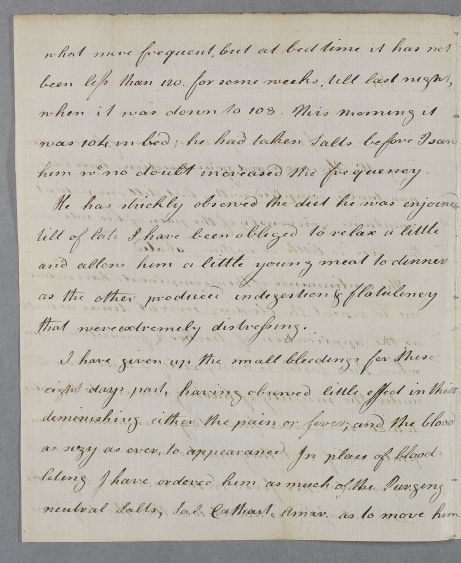 what more frequent, but at bed time it has not
been less than 120. for some weeks, till last night,
when it was down to 108. This morning it
was 104 in bed; he had taken salts before I saw
him wh. no doubt increased the frequency.
He has strickly observed the diet he was enjoined
till of late I have been obliged to relax a little
and allow him a little young meat to dinner
as the other produced indegestion & flatulency
that were extremely distressing.
I have given up the small bleedings for these
eight days past, having observed little effect in them
deminishing either the pain or fever; and the blood
as sizy as ever, to appearance. In place of blood-
leting I have ordered him as much of the Purging
neutral salts, Sal. Cathart. Amar. as to move him